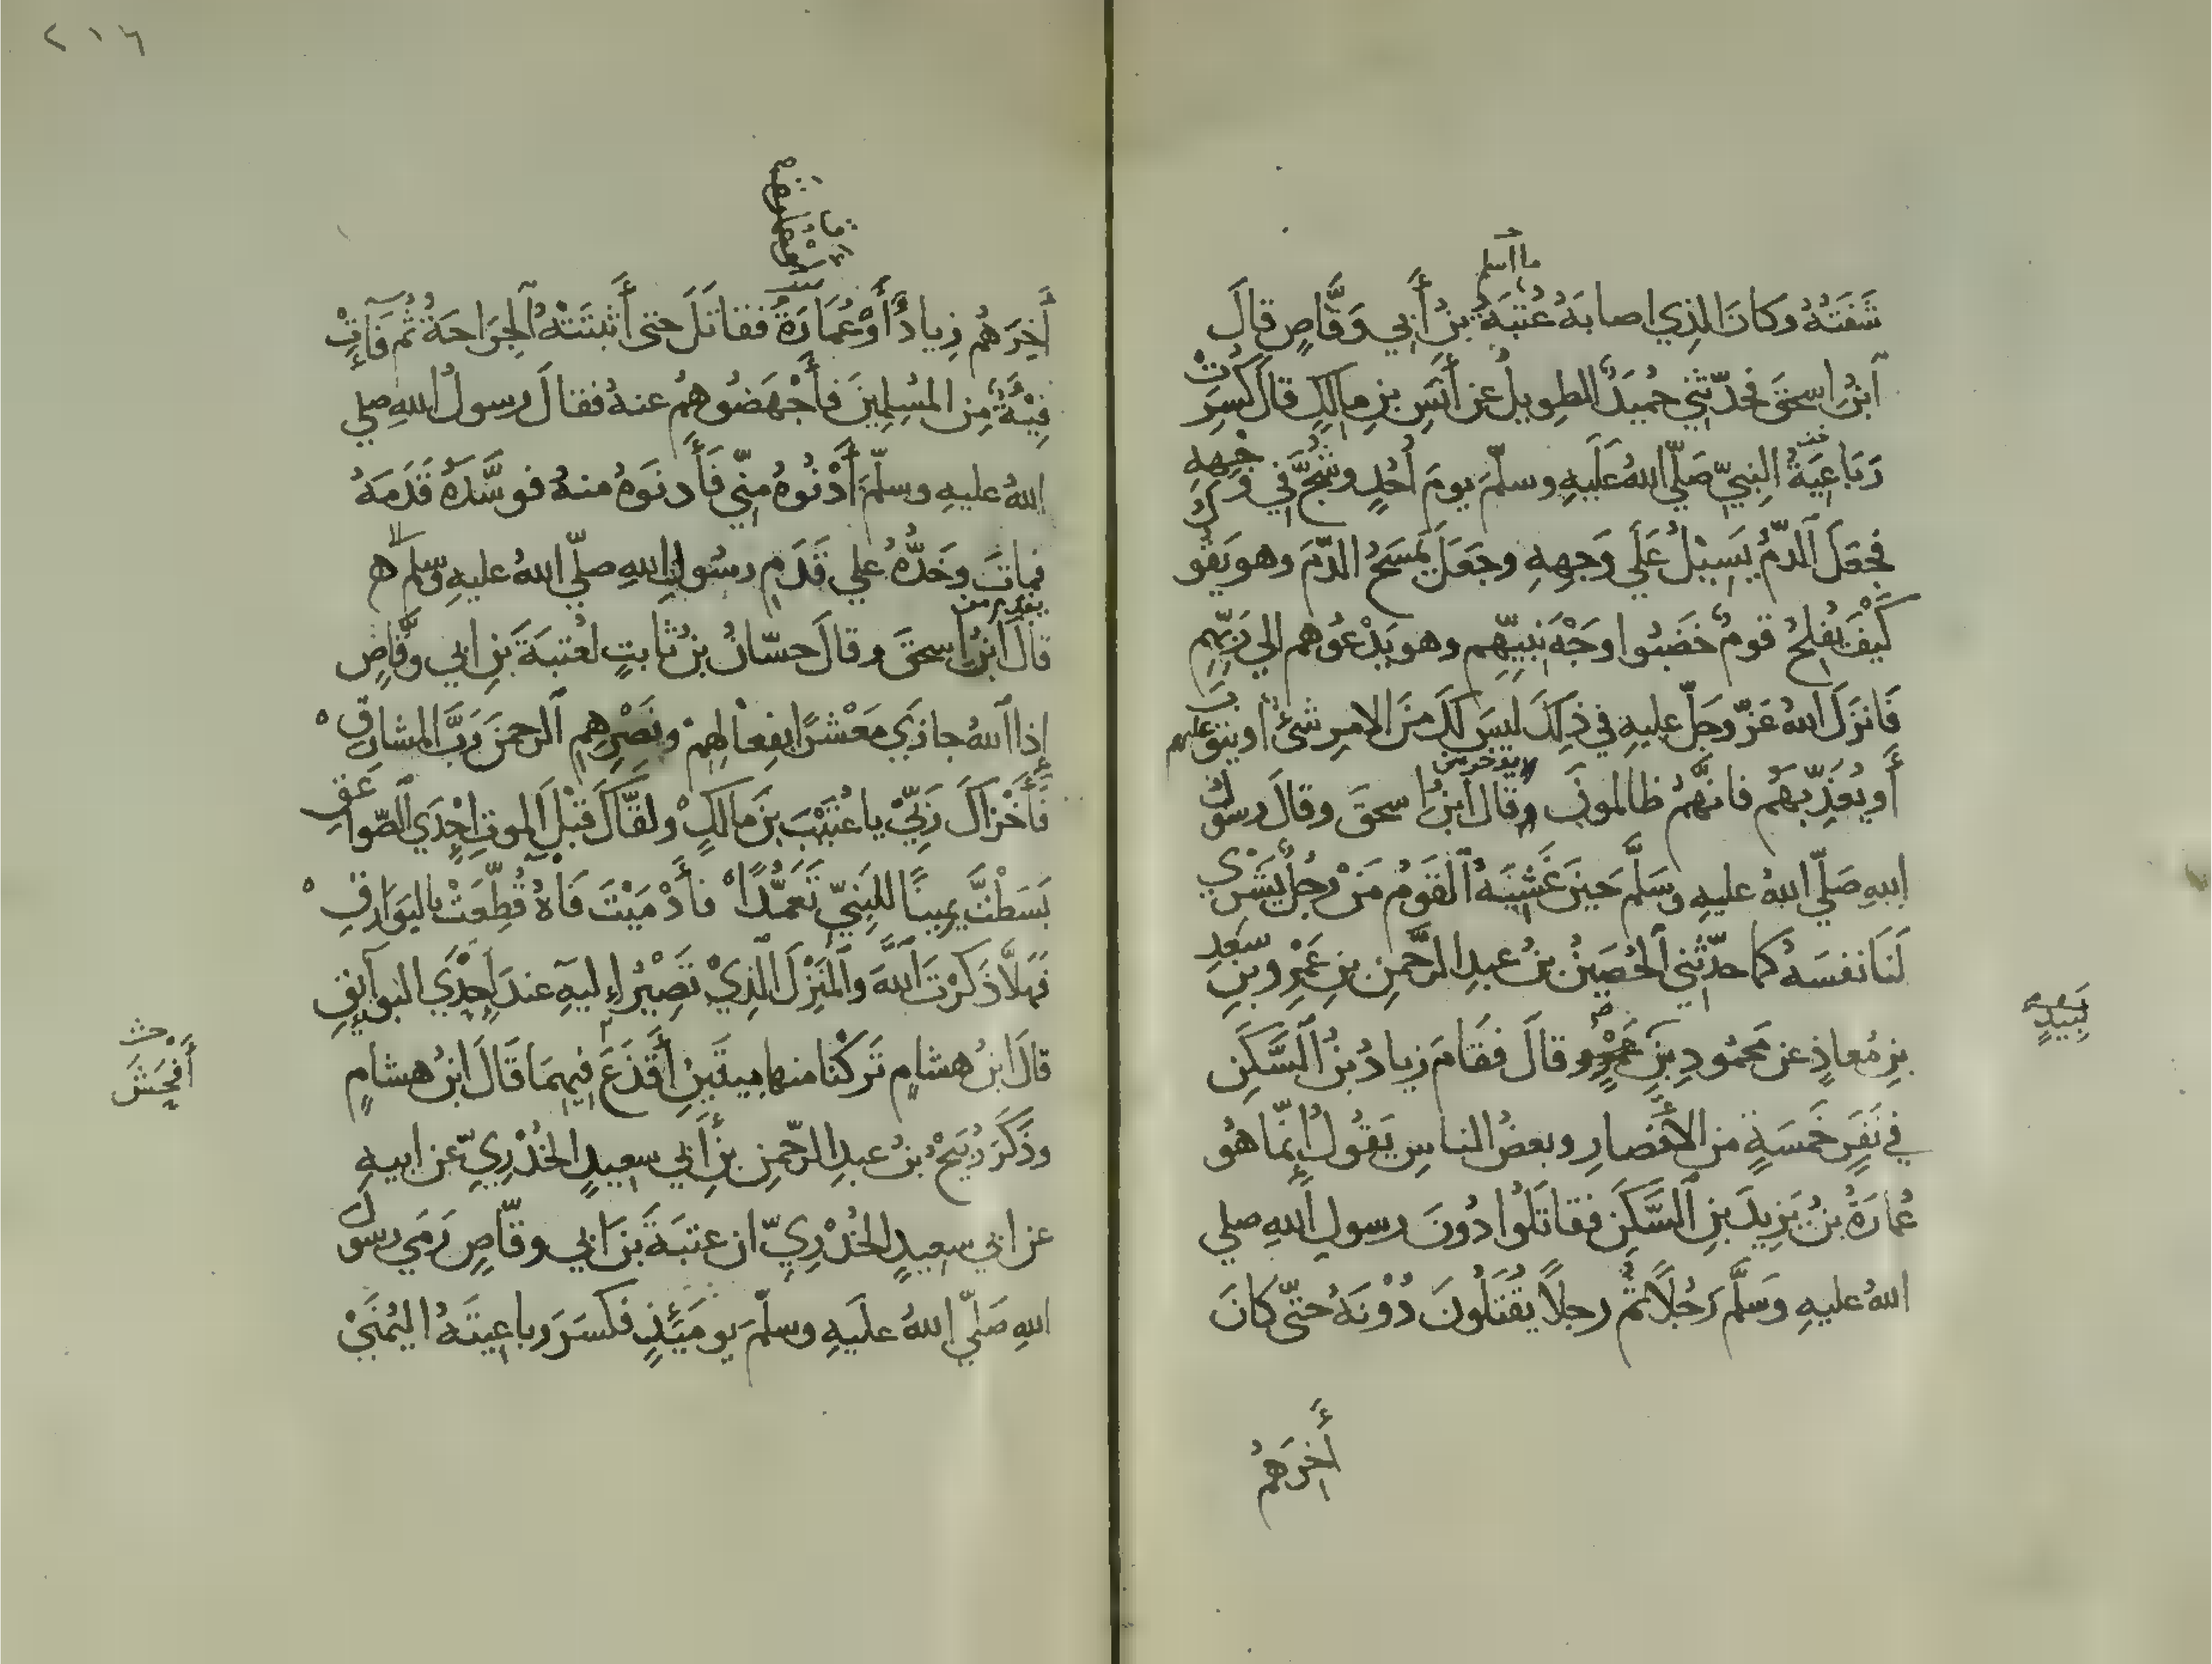 ما أسلم
شَفَتَهُ وكانَ الذي اصابَهُ عُتبَةُ بنُ أَبي وَقَّاصٍ قالَ
ابنُ اسحقَ فحدّثني حُمَيدٌ الطويلُ عن أَنَسِ بنِ مالكٍ قالَ كُسِرَتْ
رَبَاعِيَةُ النبيِّ صَلّي اللهُ عَلَيهِ وسلّمَ يومَ أُحُدٍ وشُجَّ في وَجهِهِ
فجعَلَ الدّمُ يَسِيلُ عَلَي وَجههِ وجَعَلَ يَمسَحُ الدّمَ وهو يَقولُ
كَيْفَ يُفلِحُ قومٌ خَضَبُوا وَجْهَ نَبيِّهم وهو يَدْعُوهم الي رَبِّهم
فَانزَلَ اللهُ عَزّ وجَلّ عليهِ في ذلِكَ ليسَ لكَ منَ الامرِ شئٌ أويتوبَ عليهم
أَويُعَذِّبَهُم فانَّهُم ظالمون وقالَ ابنُ اسحقَ وقالَ رسولُ
اللهِ صَلّي اللهُ عليهِ وَسَلَّمَ حينَ غَشِيَهُ القَومُ مَنْ رجُلٌ يَشرِي
لَنَا نفسَهُ كما حدّثني الحُصَينُ بنُ عبدِ الرَّحمنِ بنِ عَمْرِو بنِ سَعدِ
بنِ مُعاذٍ عن محمُودِ بنِ عَمْرٍو قالَ فقَامَ زيادُ بنُ السَّكَنِ
في نَفَرٍ خَمسَةٍ من الأَنصارِ وبعضُ الناسِ يَقُولُ إنّما هُو
عُمارَةُ بنُ يَزِيدَ بنِ السَّكَنِ فقاتَلُوا دُونَ رسولِ اللهِ صلي
اللهُ عليهِ وَسَلَّمَ رَجُلًا ثمّ رجلاً يُقتَلُونَ دُوْنَهُ حتّي كانَ
أَخِرَهُم
٢١٦
أَخِرَهُم زِيادٌ أَوْ عُمَارَةُ فقاتَلَ حتى أَثبَتَتْهُ الجِرَاحَةُ ثُمَّ فَآءَتْ
فِئَةٌ مِنَ المُسلِمِينَ فأَجْهَضُوهم عنهُ فقالَ رسولُ اللهِ صلي
اللهُ عليهِ وسلّمَ أَدْنُوهُ مِنِّي فَأَدنَوهُ منهُ فوسَّدَهُ قَدَمَهُ
فماتَ وخَدُّهُ علي قَدَمِ رسُولِ اللهِ صلّي اللهُ عليهِ وسلم ه
قالَ ابنُ اسحقَ وقالَ حسّانُ بنُ ثابتٍ لعُتبَةَ بنِ ابي وقّاصٍ
إِذا اللهُ جازَي مَعْشَرًا بفِعالِهِم ونَصْرِهِمِ الرحمنَ رَبَّ المشارِقِ
فَأَخْزاكَ رَبِّي يا عُتَيْبَ بنَ مالكٍ ولقّاكَ قَبْلَ الموتِ إِحْدَي الصّواعِقِ
بَسَطْتَ يمينًا للنَّبيِّ تَعَمُّدًا فأَدْمَيْتَ فَاهُ قُطِّعَتْ بالبَوارِقِ
فَهَلاَّ ذَكَرْتَ اللهَ والمَنْزِلَ الذِيْ تَصِيْرُ إليهِ عندَ إِحْدَي البوآئقِ
قالَ ابنُ هشامٍ تَرَكْنا منها بيتَينِ أَقْذَعَ فيهِمَا قَالَ ابنُ هشامٍ
وذَكَرَ رُبَيحُ بنُ عبدِ الرّحمنِ بنِ أَبي سعيدٍ الخُدْرِيِّ عن ابيهِ
عن ابي سعيدٍ الخُدْرِيِّ ان عتبَةَ بنَ ابي وقّاصٍ رَمَي رسولَ
اللهِ صَلّي اللهُ عَلَيهِ وسلّمَ يومَئِذٍ فكسَرَ رباعِيَتَهُ اليُمنَيْ
أَفحَشَ